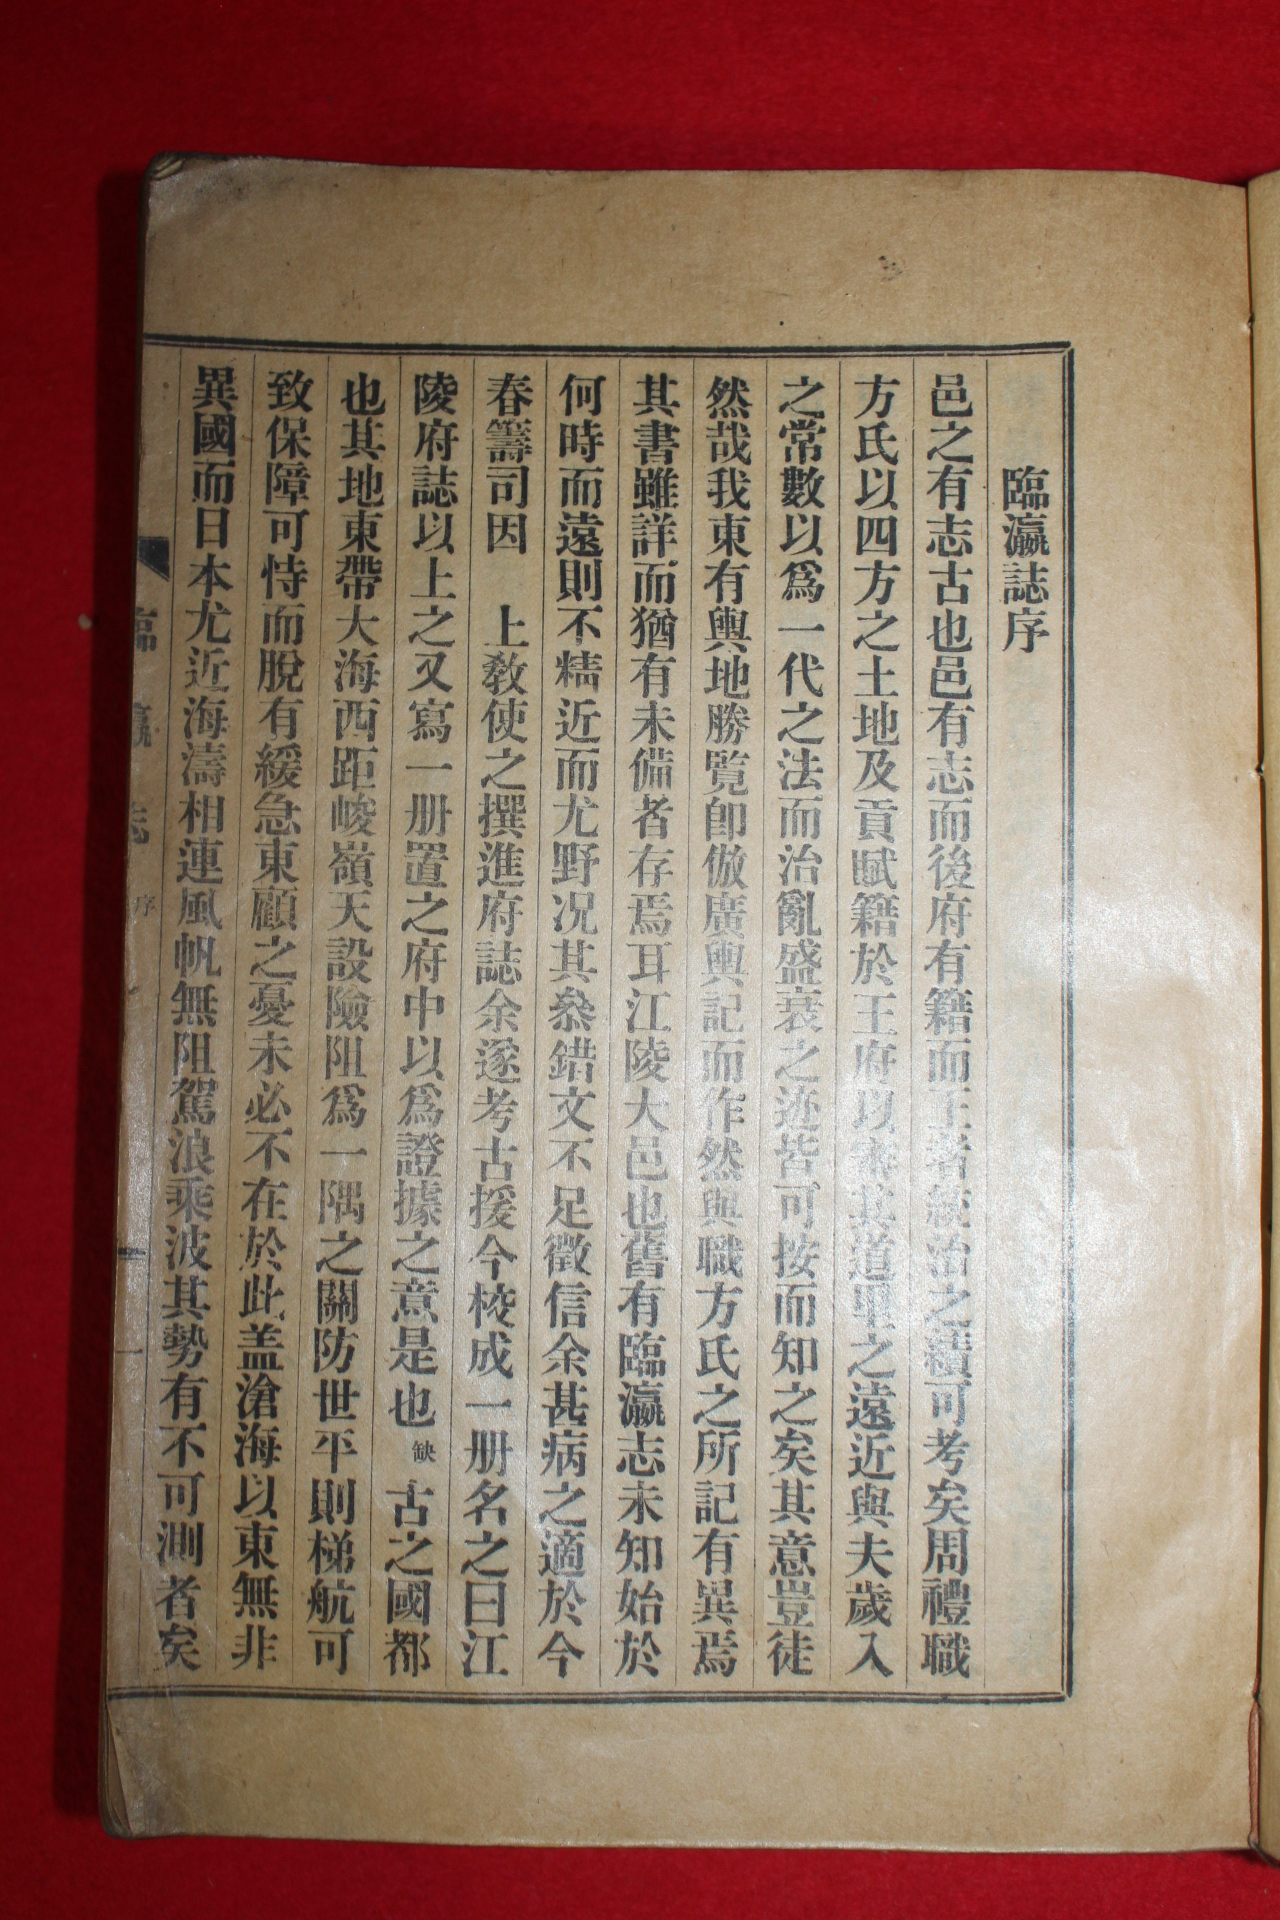 臨瀛誌序
邑之有志古也邑有志而後府有籍而王者統治之績可考矣周禮職
方氏以四方之土地及貢賦籍於王府以秦其道里之遠近與夫歲入
之常數以爲一代之法而治亂盛衰之迹皆可按而知之矣其意豈徒
然哉我東有輿地勝覽卽倣廣輿記而作然與職方氏之所記有異焉
其書雖詳而猶有未備者存焉耳江陵大邑也舊有臨瀛志未知始於
何時而遠則不精近而尤野況其叅錯文不足徵信余甚病之適於今
春籌司因　上敎使之撰進府誌余遂考古援今校成一册名之曰江
陵府誌以上之又寫一册置之府中以爲證據之意是也缺古之國都
也其地東帶大海西距峻嶺天設險阻爲一隅之關防世平則梯航可
致保障可恃而脫有緩急東顧之憂未必不在於此盖滄海以東無非
異國而日本尤近海濤相連風帆無阻駕浪乘波其勢有不可測者矣
臨瀛誌 序 一